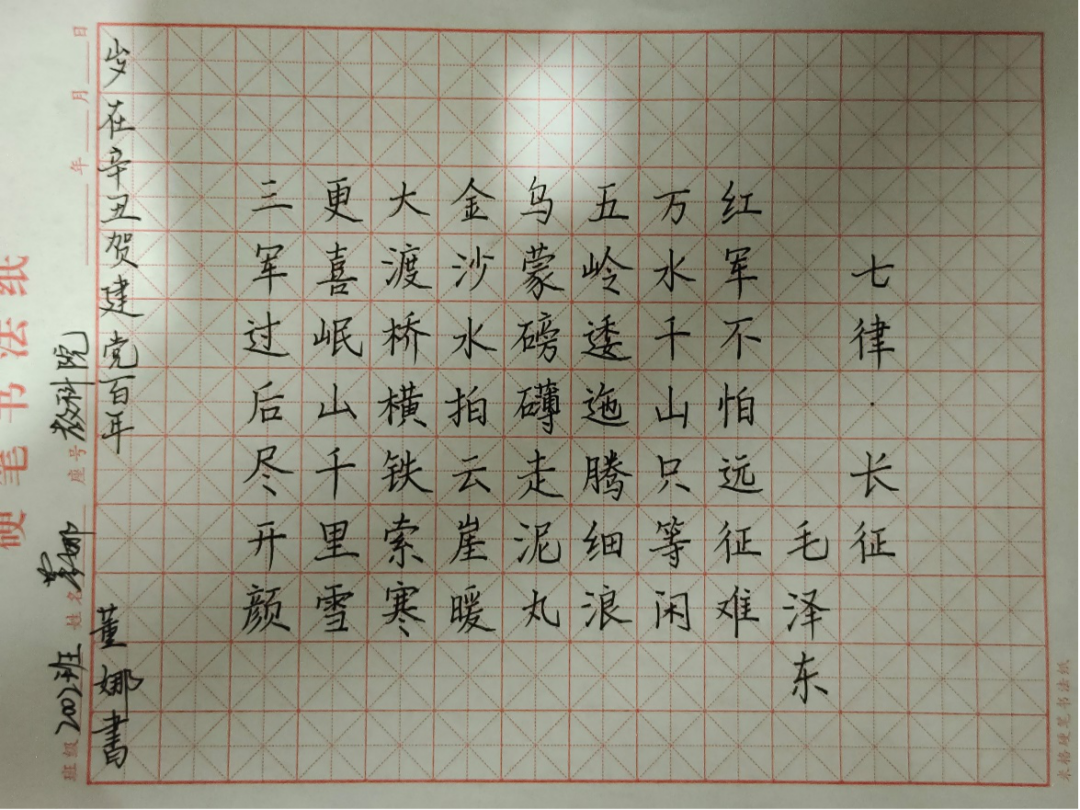 硬笔书法纸
班级 2002班 姓名 董娜 座号 教科院 年 月 日
七律·长征
毛泽东
红军不怕远征难
万水千山只等闲
五岭逶迤腾细浪
乌蒙磅礴走泥丸
金沙水拍云崖暖
大渡桥横铁索寒
更喜岷山千里雪
三军过后尽开颜
岁在辛丑贺建党百年
董娜書
米格硬笔书法纸